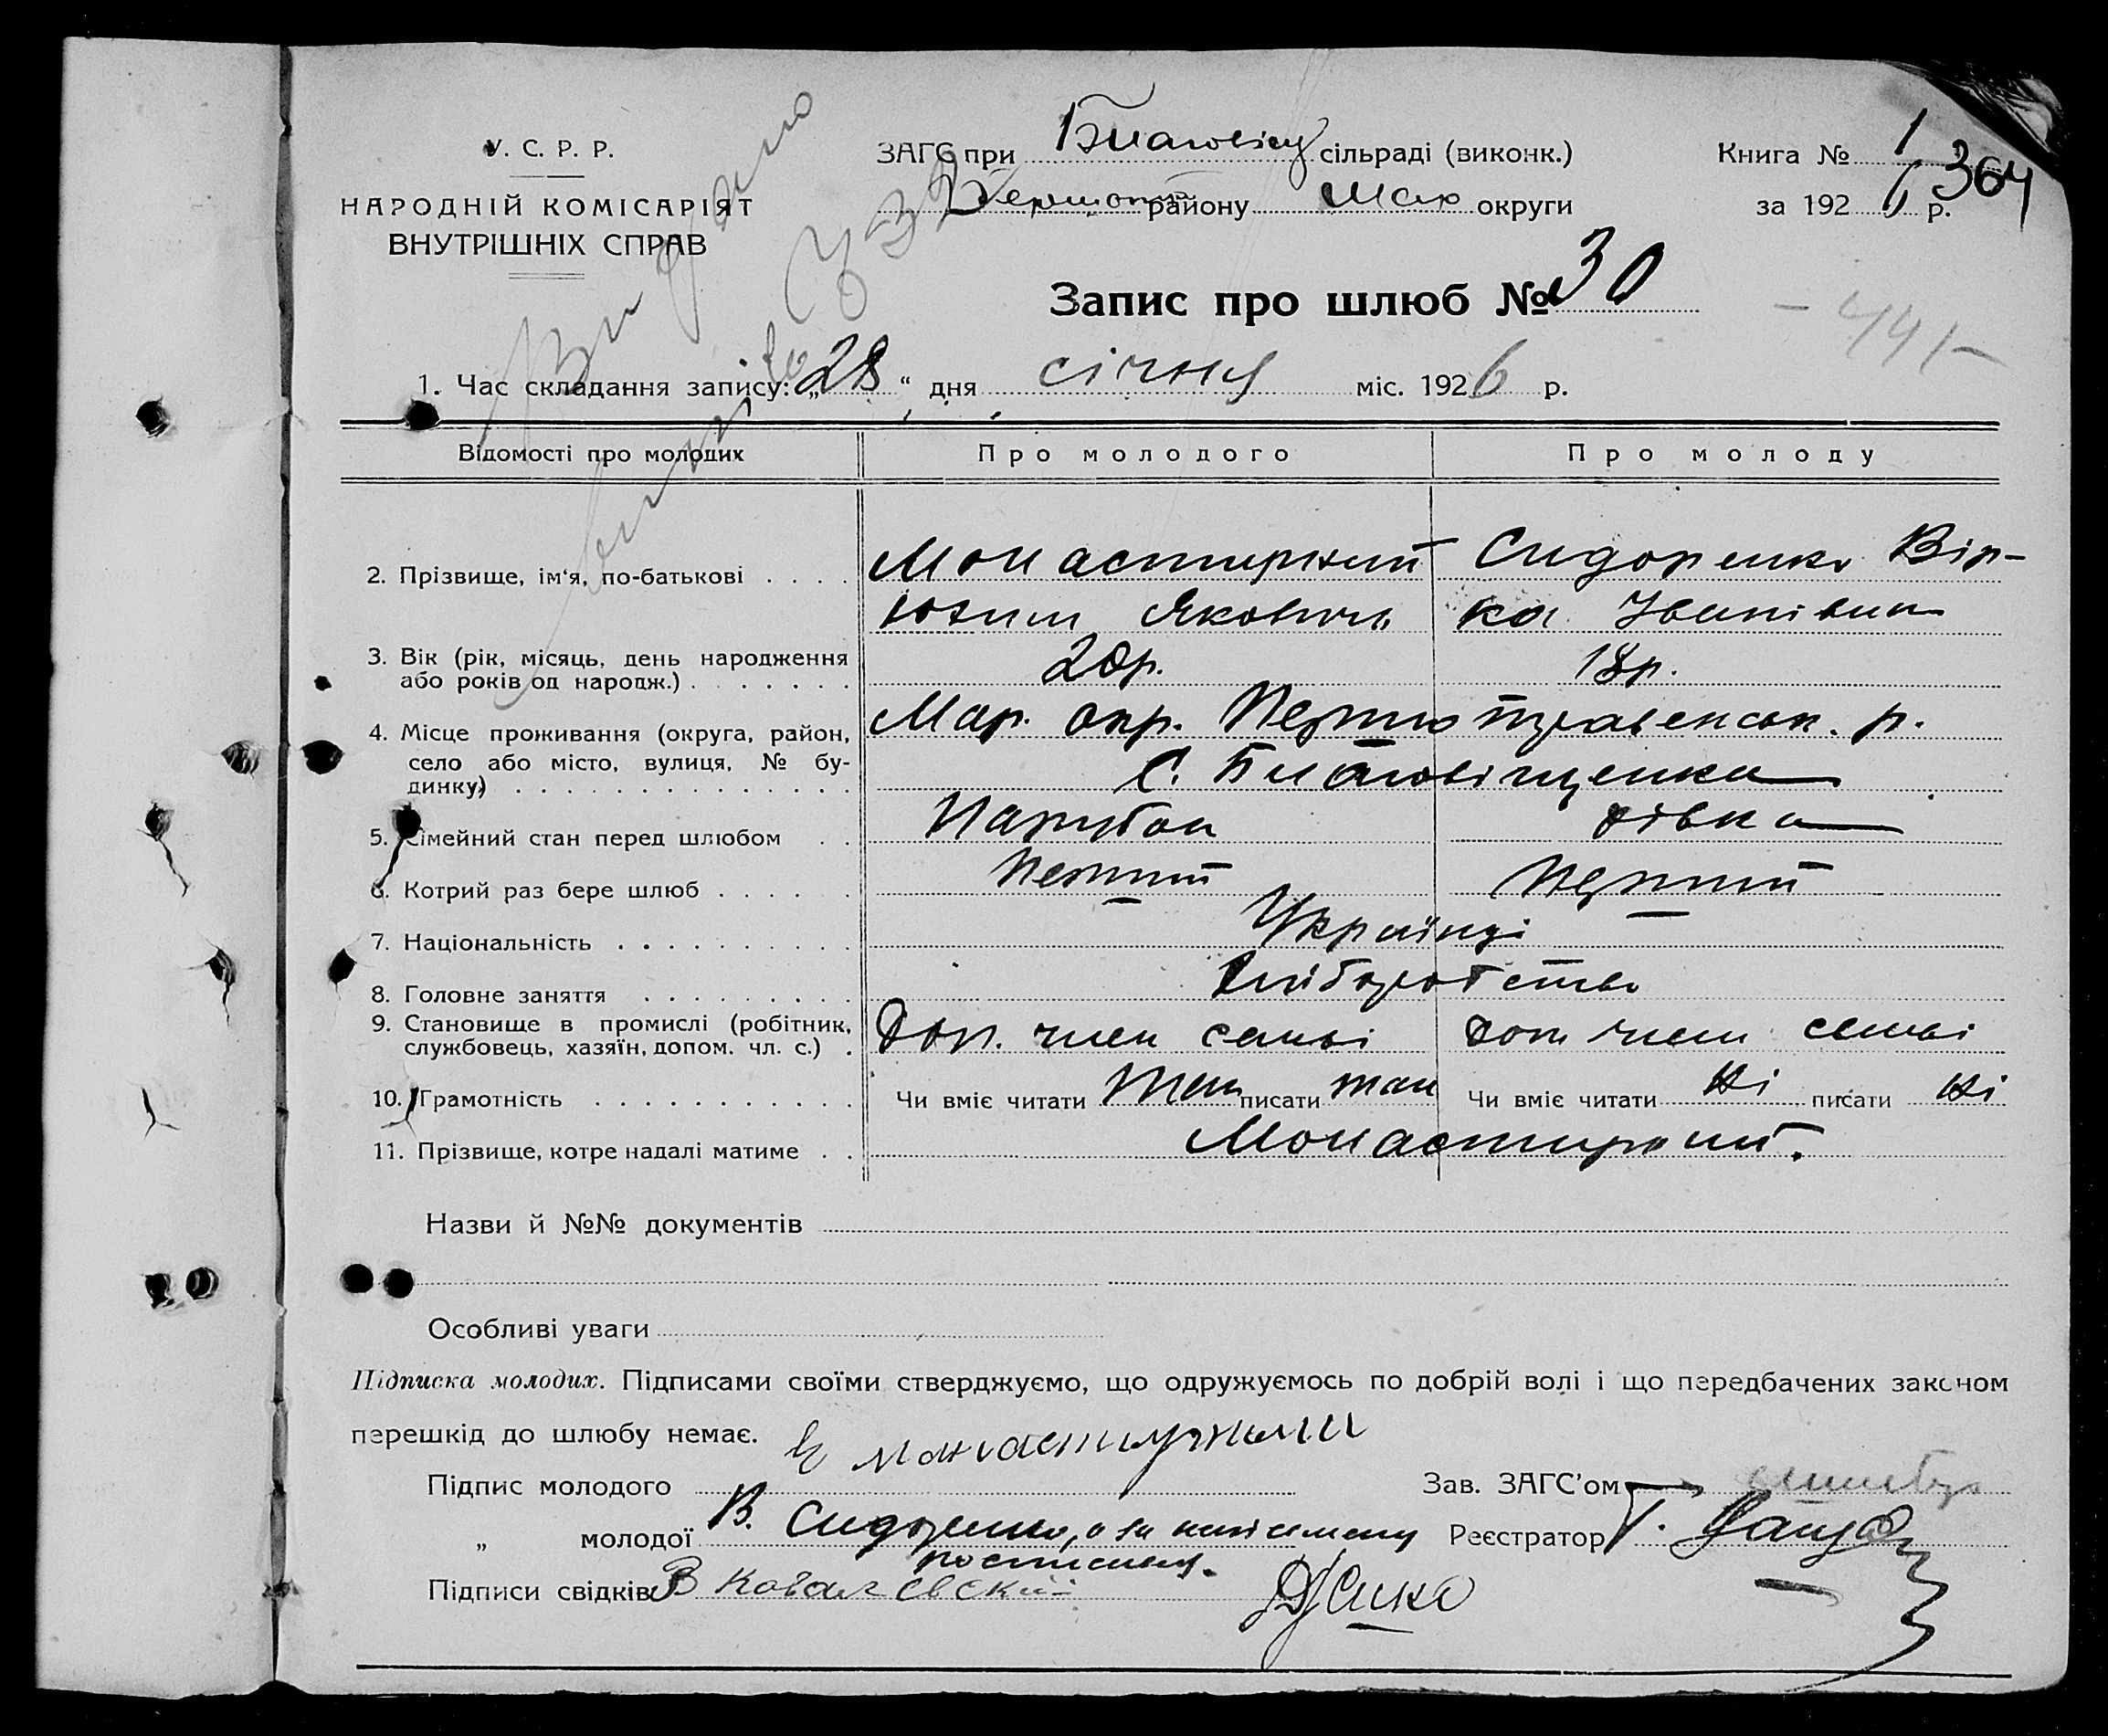 У. С. Р. Р.
НАРОДНІЙ КОМІСАРІЯТ
ВНУТРІШНІХ СПРАВ
ЗАГС при Благовіщ сільраді (виконк.)
району Мар округи
Книга № 1
за 192 6 р.
364
Запис про шлюб № 30
- 441 -
Видано
1. Час складання запису: „28“ дня січня міс. 1926 р.
Відомості про молодих Про молодого Про молоду
2. Прізвище, ім'я, по-батькові Монастирний Сидоренко Вір-
Юхим Якович ка Іванівна
3. Вік (рік, місяць, день народження
або років од народж.) 20р. 18р.
4. Місце проживання (округа, район,
село або місто, вулиця, № бу-
динку)
Мар. окр. Першотравенськ. р.
С. Благовіщенка
5. Сімейний стан перед шлюбом Парубок дівка
6. Котрий раз бере шлюб Перший Перший
7. Національність Українці
8. Головне заняття Хліборобство
9. Становище в промислі (робітник,
службовець, хазяїн, допом. чл. с.) Доп. член семьі доп член семьі
10. Грамотність Чи вміє читати так писати так Чи вміє читати Ні писати Ні
11. Прізвище, котре надалі матиме Монастирний.
Назви й №№ документів
Особливі уваги
Підписка молодих. Підписами своїми стверджуємо, що одружуємось по добрій волі і що передбачених законом
перешкід до шлюбу немає.
Підпис молодого Зав. ЗАГС'ом
„ молодої В. Сидоренко, а за неписьмену Реєстратор Г.
росписався.
Підписи свідків В Ковалевский